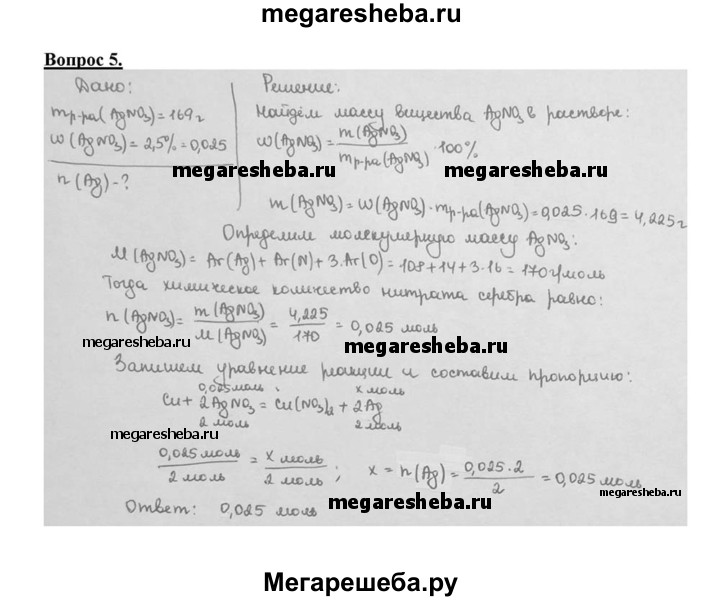 megaresheba.ru
Вопрос 5.
Дано:
mр-ра(AgNO₃) = 169 г
w(AgNO₃) = 2,5% = 0,025
n(Ag) - ?
Решение:
Найдём массу вещества AgNO₃ в растворе:
w(AgNO₃) = m(AgNO₃) / mр-ра(AgNO₃) · 100%
megaresheba.ru megaresheba.ru
m(AgNO₃) = w(AgNO₃) · mр-ра(AgNO₃) = 0,025 · 169 = 4,225 г
Определим молекулярную массу AgNO₃:
M(AgNO₃) = Ar(Ag) + Ar(N) + 3·Ar(O) = 108 + 14 + 3·16 = 170 г/моль
Тогда химическое количество нитрата серебра равно:
n(AgNO₃) = m(AgNO₃) / M(AgNO₃) = 4,225 / 170 = 0,025 моль
megaresheba.ru megaresheba.ru
Запишем уравнение реакции и составим пропорцию:
0,025 моль x моль
Cu + 2AgNO₃ = Cu(NO₃)₂ + 2Ag
2 моль 2 моль
megaresheba.ru
0,025 моль / 2 моль = x моль / 2 моль ; x = n(Ag) = 0,025 · 2 / 2 = 0,025 моль
megaresheba.ru
Ответ: 0,025 моль
megaresheba.ru
Мегарешеба.ру